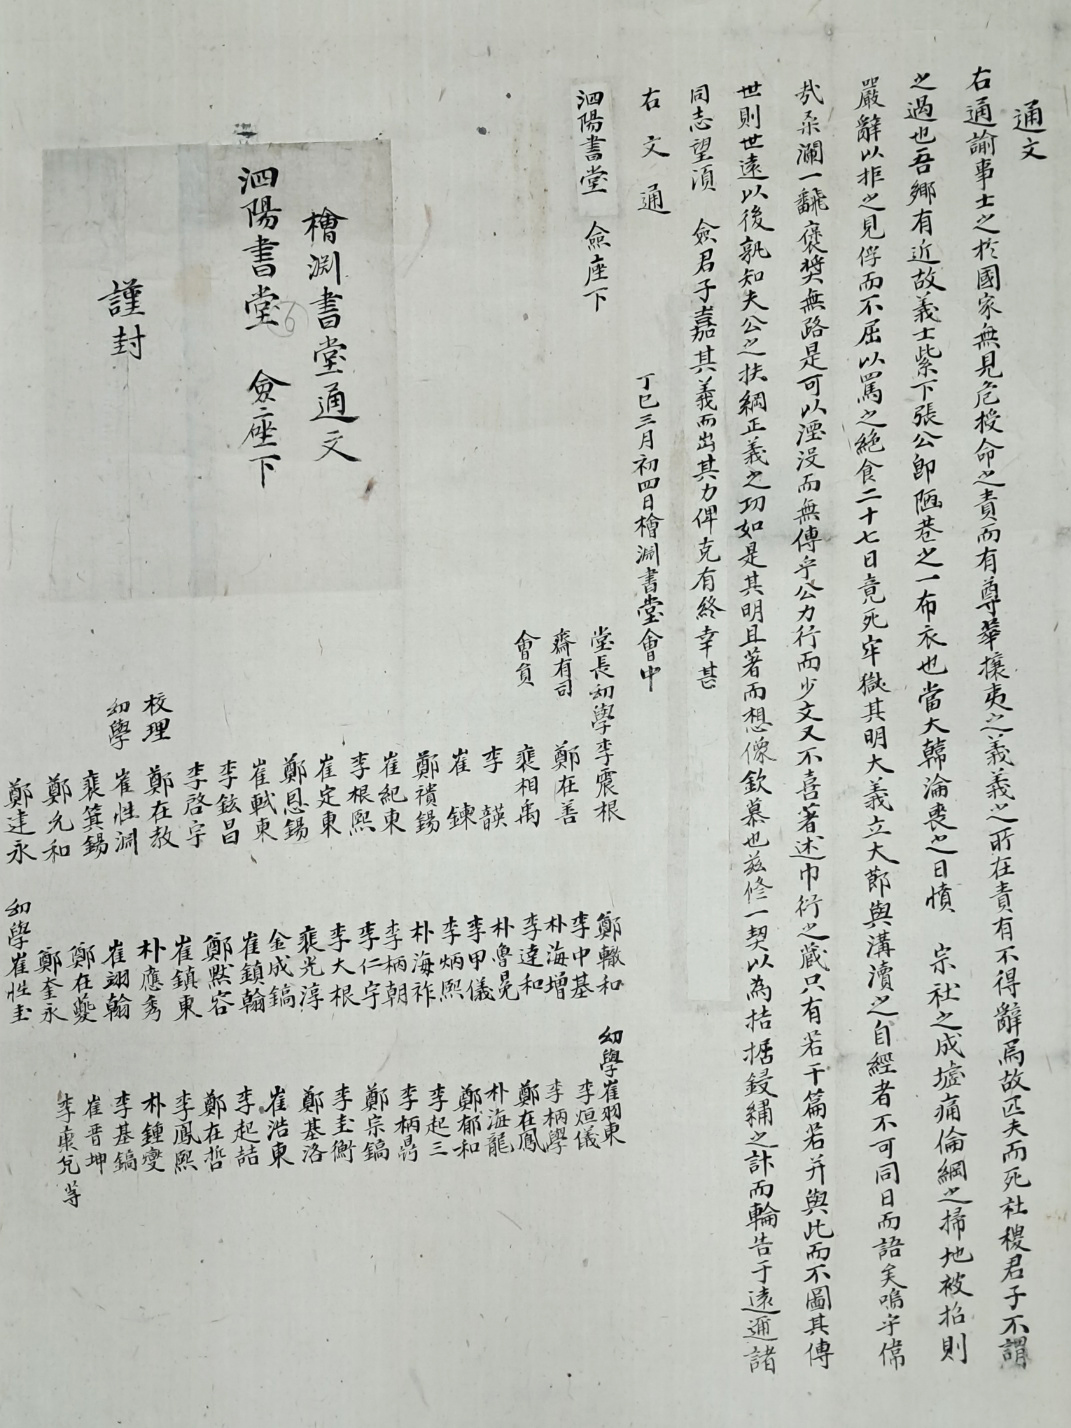 通文
右通諭事士之於國家無見危授命之責而有尊華攘夷之義義之所在責有不得辭焉故匹夫而死社稷君子不謂
之過也吾鄉有近故義士紫下張公卽陋巷之一布衣也當大韓淪喪之日憤 宗社之成墟痛倫綱之掃地被招則
嚴辭以拒之見俘而不屈以罵之絶食二十七日竟死牢獄其明大義立大節與溝瀆之自經者不可同日而語矣嗚乎僞
哉桑瀾一飜褒奬無路是可以湮沒而無傳乎公力行而少文又不喜著述巾衍之藏只有若干篇若幷與此而不圖其傳
世則世遠以後孰知夫公之扶綱正義之功如是其明且著而想像欽慕也玆修一契以為拮据鋟繡之計而輪告于遠邇諸
同志望須 僉君子嘉其義而出其力俾克有終幸甚
右文通
泗陽書堂 僉座下
丁巳三月初四日檜淵書堂會中
堂長幼學李震根
齋有司 鄭在善
會員 裵相禹
李 韺
崔 鍊
鄭禶錫
崔紀東
李根熙
崔定東
鄭恩錫
崔軾東
李鉉昌
李啓宇
校理 鄭在敎
幼學 崔性淵
裵箕錫
鄭允和
鄭逹永
鄭轍和
李中基
朴海增
李達和
朴魯晃
李甲儀
李炳熙
朴海祚
李柄朝
李仁宇
李大根
裵光淳
金成鎬
崔鎮翰
鄭默容
崔鎮東
朴應秀
崔翊翰
鄭在夔
鄭奎永
幼學崔性圭
幼學崔羽東
李烜儀
李柄學
鄭在鳳
朴海龍
鄭郁和
李起三
李柄昺
鄭宗鎬
李圭衡
鄭基洛
崔浩東
李起喆
鄭在哲
李鳳熙
朴鍾燮
李基鎬
崔晋坤
李東兌等
檜淵書堂通文
泗陽書堂 僉座下
謹封